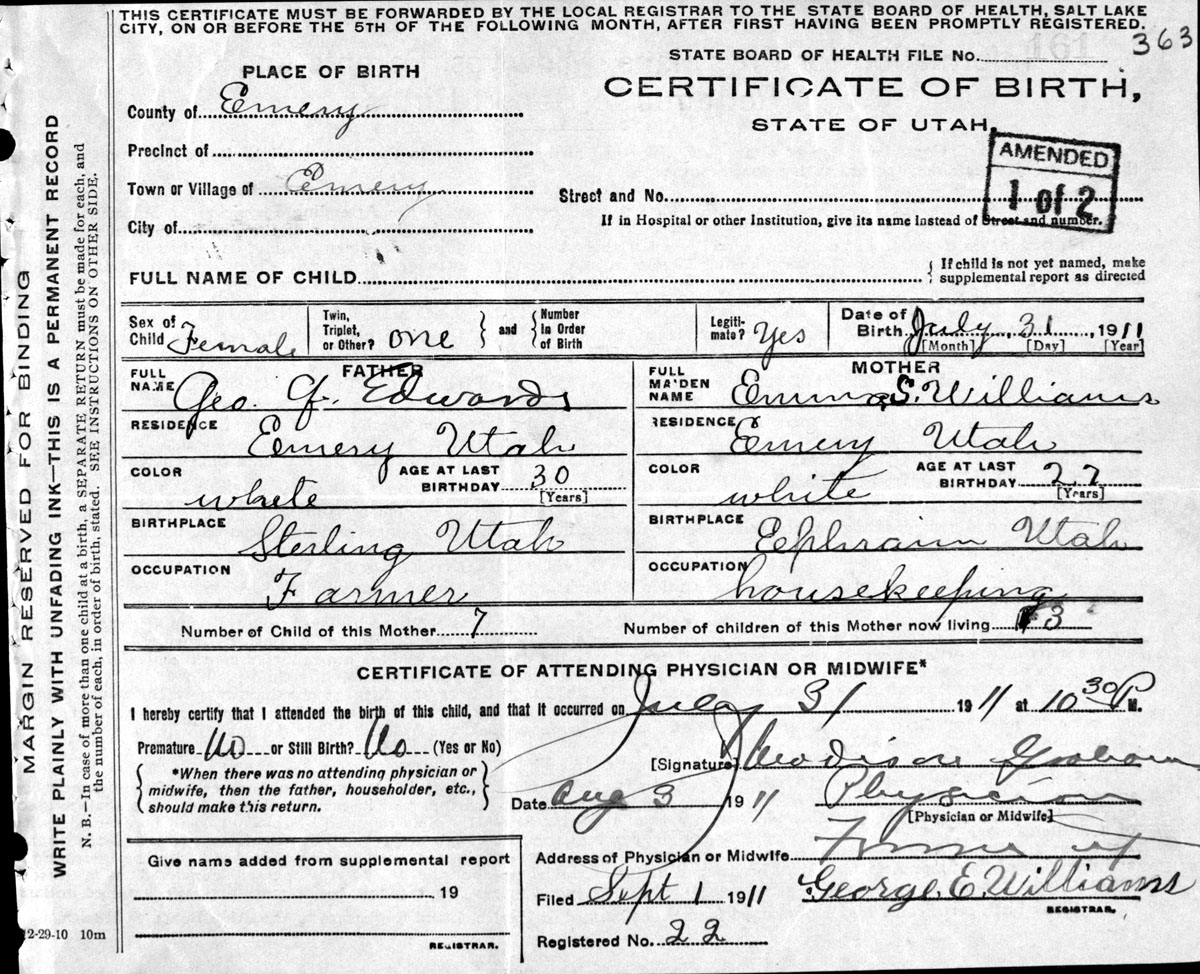 THIS CERTIFICATE MUST BE FORWARDED BY THE LOCAL REGISTRAR TO THE STATE BOARD OF HEALTH, SALT LAKE
CITY, ON OR BEFORE THE 5TH OF THE FOLLOWING MONTH, AFTER FIRST HAVING BEEN PROMPTLY REGISTERED.
363
STATE BOARD OF HEALTH FILE No.
PLACE OF BIRTH
CERTIFICATE OF BIRTH,
STATE OF UTAH.
AMENDED
1 of 2
County of Emery
Precinct of
Town or Village of Emery
Street and No.
City of
If in Hospital or other Institution, give its name instead of Street and number.
FULL NAME OF CHILD
If child is not yet named, make
supplemental report as directed
Sex of Child Female
Twin, Triplet, or Other? one
and Number in Order of Birth
Legiti-mate? Yes
Date of Birth July 31, 1911
[Month] [Day] [Year]
FATHER
FULL NAME Geo. F. Edwards
RESIDENCE Emery Utah
COLOR white AGE AT LAST BIRTHDAY 30
[Years]
BIRTHPLACE Sterling Utah
OCCUPATION Farmer
MOTHER
FULL MAIDEN NAME Emma S. Williams
RESIDENCE Emery Utah
COLOR white AGE AT LAST BIRTHDAY 27
[Years]
BIRTHPLACE Ephraim Utah
OCCUPATION housekeeping
Number of Child of this Mother 7
Number of children of this Mother now living 3
CERTIFICATE OF ATTENDING PHYSICIAN OR MIDWIFE*
I hereby certify that I attended the birth of this child, and that it occurred on July 31 1911 at 10 30 P M.
Premature No or Still Birth? No (Yes or No)
*When there was no attending physician or
midwife, then the father, householder, etc.,
should make this return.
[Signature] Graham
Date Aug 3 1911 Physician
[Physician or Midwife]
Address of Physician or Midwife
Give name added from supplemental report
19
REGISTRAR.
Filed Sept 1 1911 George. E. Williams
REGISTRAR.
Registered No. 22
12-29-10 10m
MARGIN RESERVED FOR BINDING
WRITE PLAINLY WITH UNFADING INK—THIS IS A PERMANENT RECORD
N. B.—In case of more than one child at a birth, a SEPARATE RETURN must be made for each, and
the number of each, in order of birth, stated. SEE INSTRUCTIONS ON OTHER SIDE.